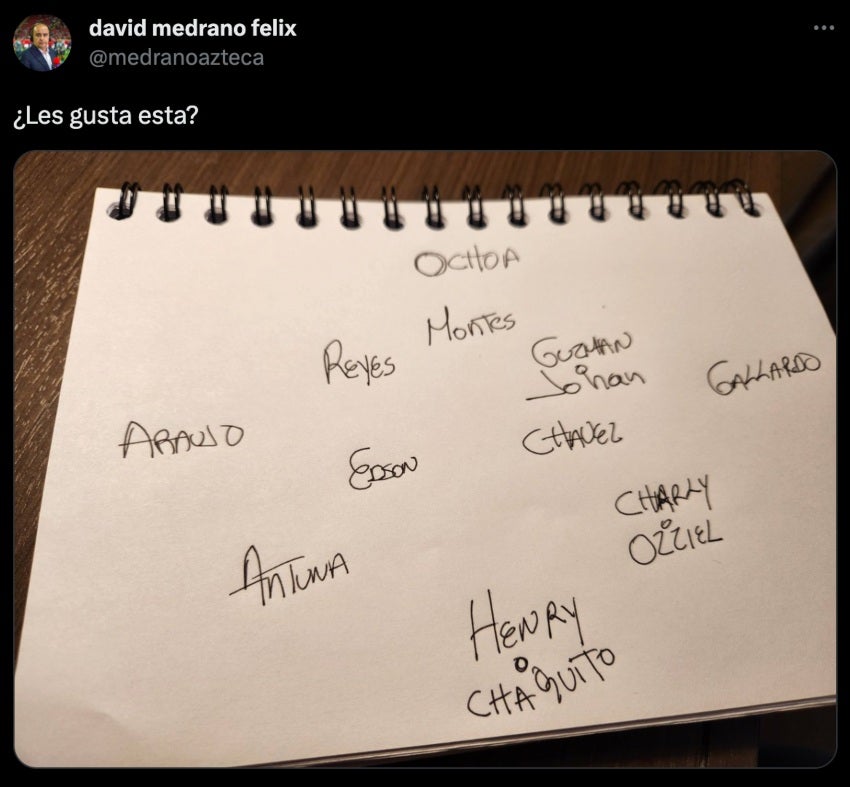 david medrano felix
@medranoazteca
¿Les gusta esta?
OCHOA
MONTES
REYES
GUZMAN
Johan
GALLARDO
ARAUJO
CHAVEZ
EDSON
CHARLY
o
OZZIEL
ANTUNA
HENRY
o
CHAQUITO